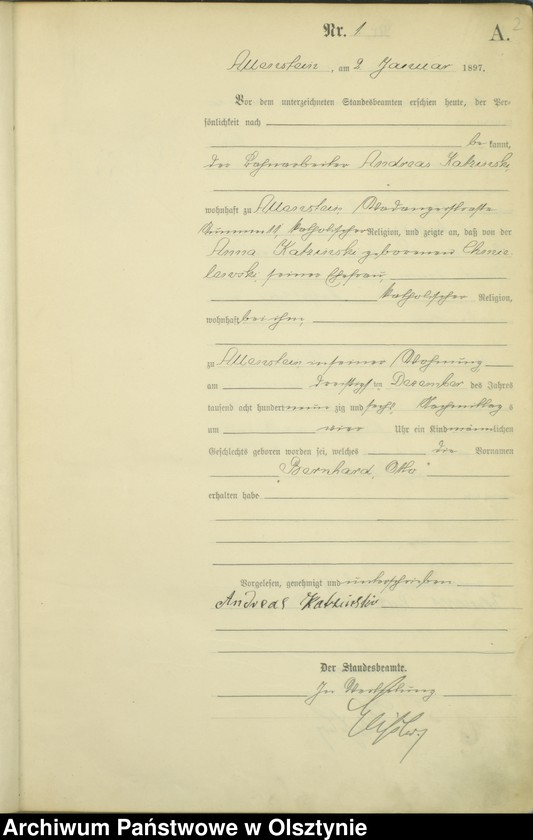 2
Nr. 1 A.
Allenstein, am 2 Januar 1897.
Vor dem unterzeichneten Standesbeamten erschien heute, der Per-
sönlichkeit nach
bekannt,
der Bahnarbeiter Andreas Katzinski
wohnhaft zu Allenstein, Wadangerstraße
Nummer 11, katholischer Religion, und zeigte an, daß von der
Anna Katzinski geborenen Chmie-
lewski, seiner Ehefrau,
katholischer Religion,
wohnhaft bei ihm,
zu Allenstein in seiner Wohnung
am dreißigsten Dezember des Jahres
tausend acht hundert neunzig und sechs, Nachmittags
um vier Uhr ein Kind männlichen
Geschlechts geboren worden sei, welches die Vornamen
"Bernhard, Otto"
erhalten habe
Vorgelesen, genehmigt und unterschrieben
Andreas Katzinski
Der Standesbeamte.
In Vertretung
Archiwum Państwowe w Olsztynie